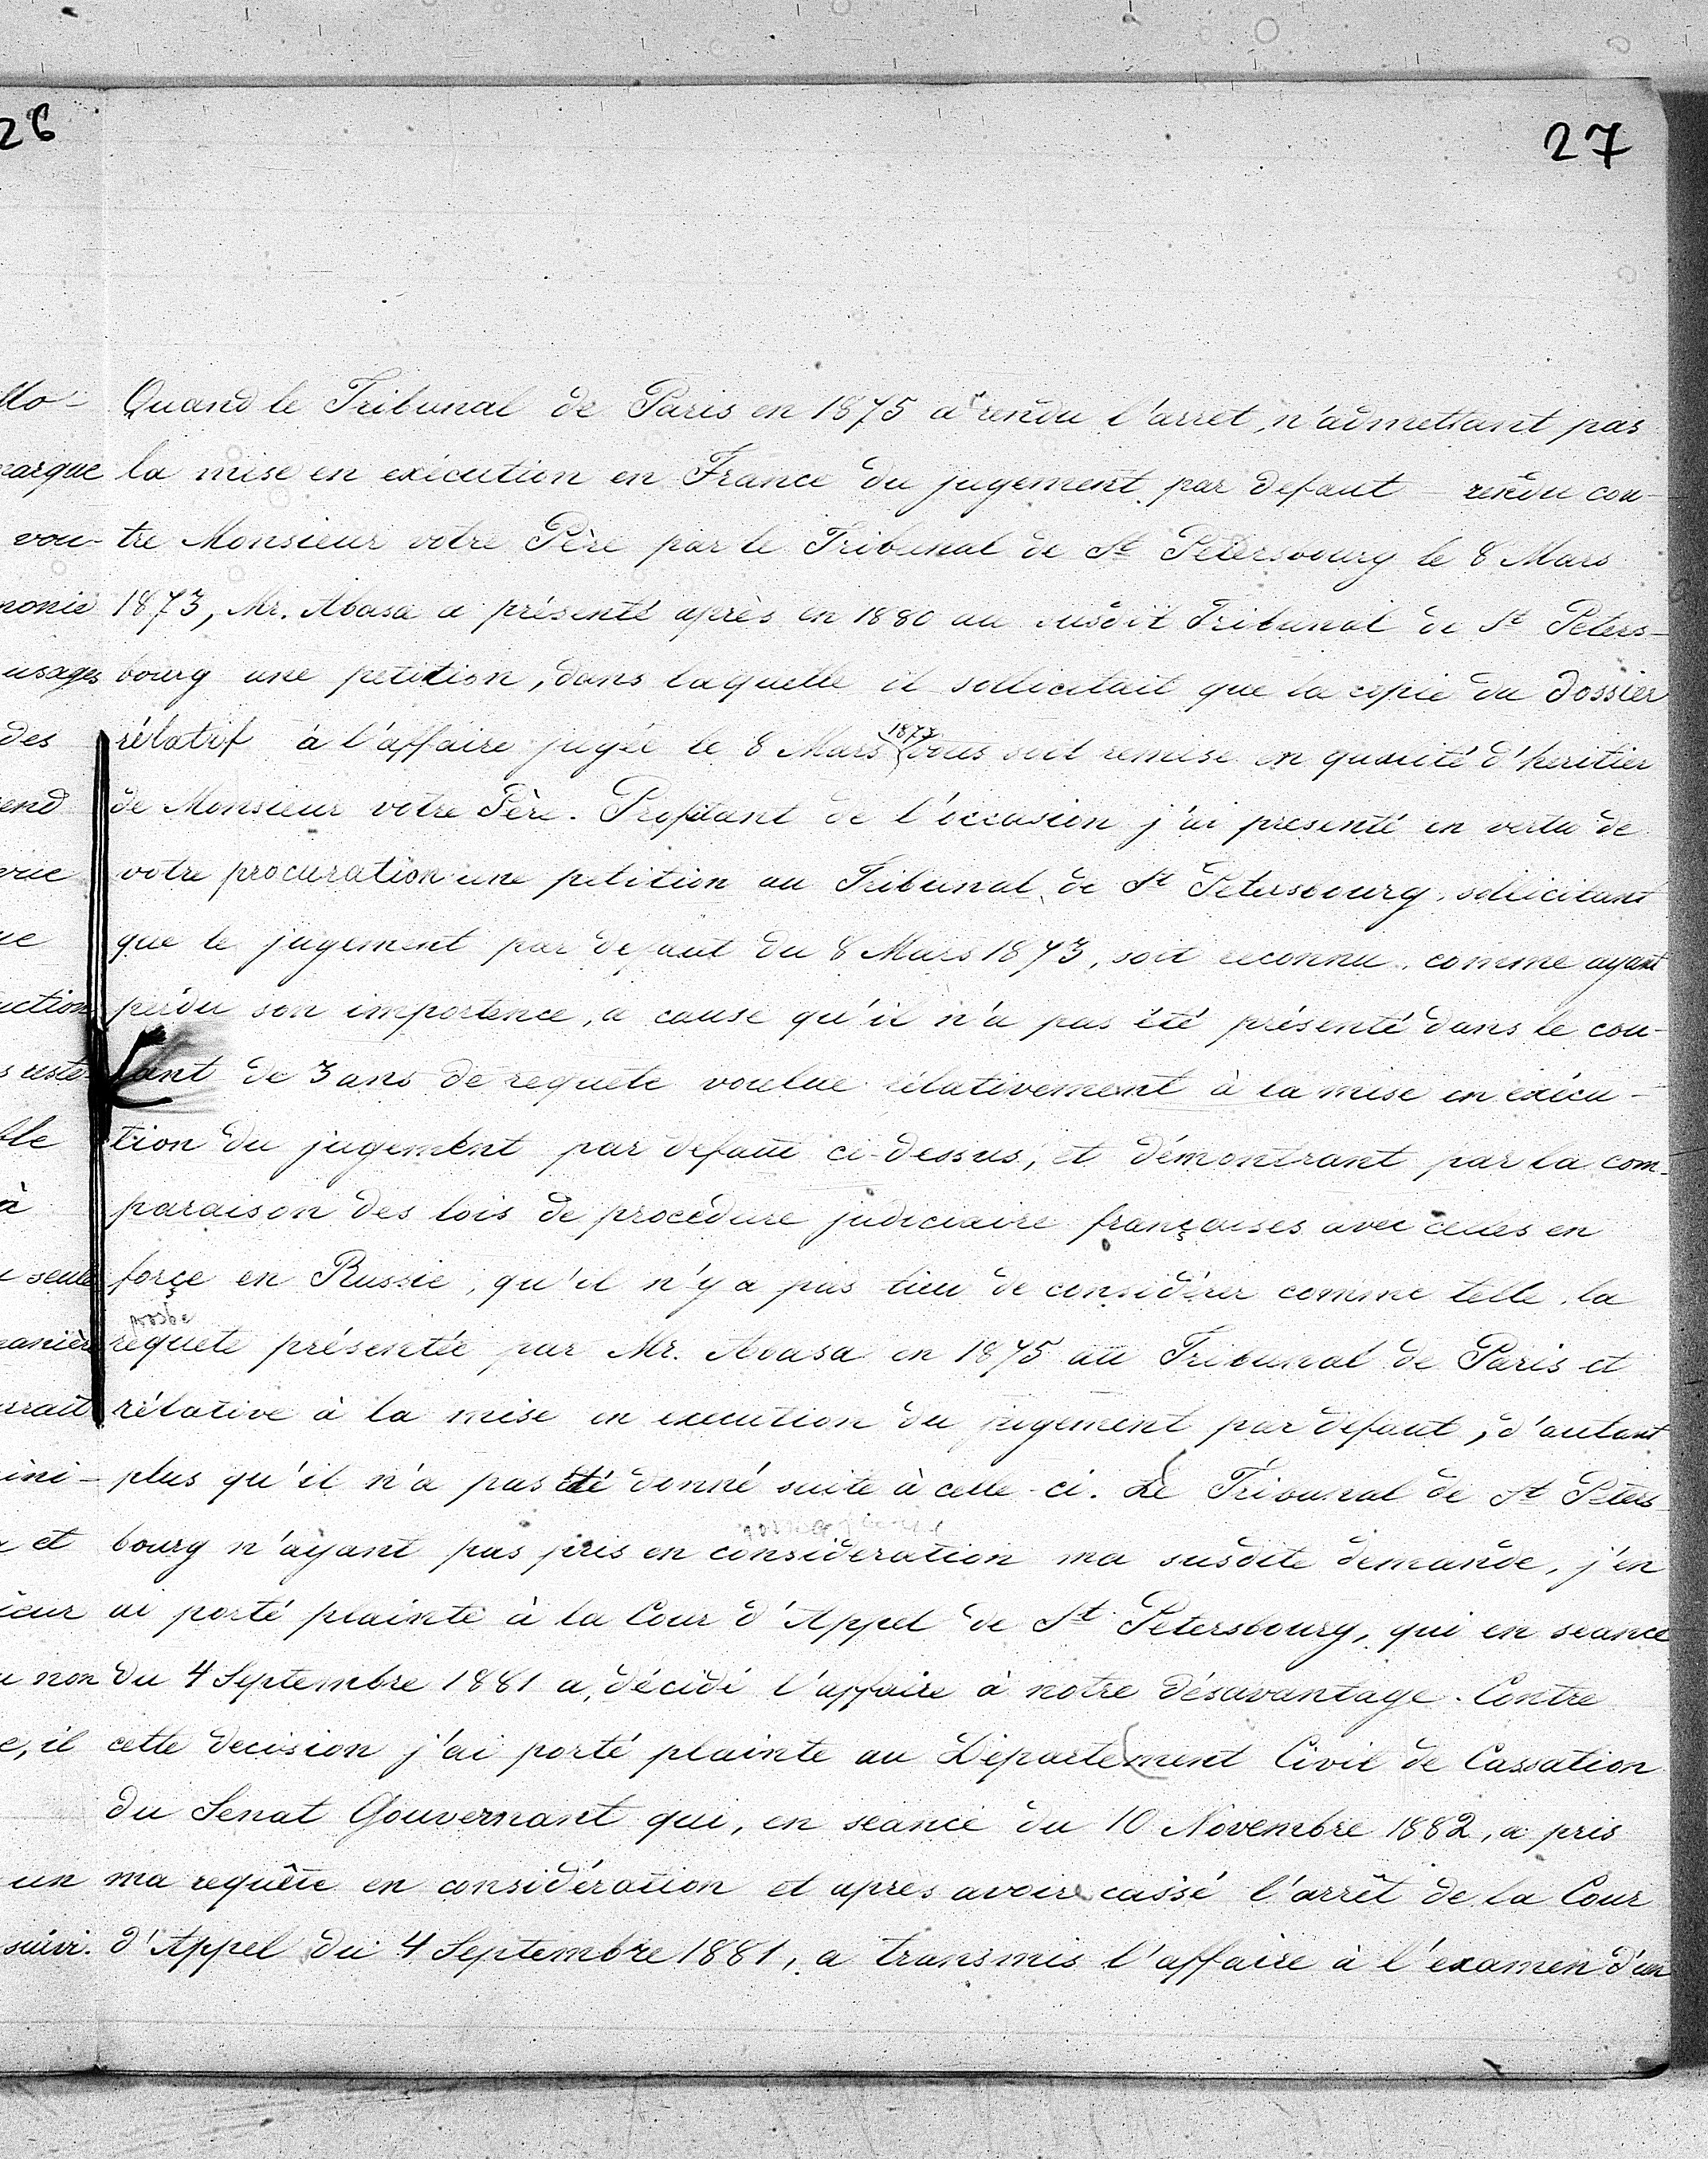 26
27
Quand le Tribunal de Paris en 1875 a rendu l'arret, n'admettant pas
la mise en exécution en France du jugement par defaut – rendu con-
tre Monsieur votre Père par le Tribunal de St Petersbourg le 8 Mars
1873, Mr. Abasa a présenté après en 1880 au susdit Tribunal de St Peters-
bourg une petition, dans laquelle il sollicitait que la copie du dossier
1873
rélatif à l'affaire jugée le 8 Mars vous soit remise en qualité d'heritier
de Monsieur votre Père. Profitant de l'occasion j'ai presenté en vertu de
votre procuration une petition au Tribunal de St Petersbourg, sollicitant
que le jugement par defaut du 8 Mars 1873, soit reconnu comme ayant
perdu son importence, a cause qu'il n'a pas été présenté dans le cou-
rant de 3 ans de requete voulue rélativement à la mise en exécu-
tion du jugement par defaut ci-dessus, et démontrant par la com-
paraison des lois de procedure judiciaire françaises avec celles en
forçe en Russie, qu'il n'y a pas lieu de considérer comme telle, la
requete présentée par Mr. Abasa en 1875 au Tribunal de Paris et
rélative à la mise en execution du jugement par defaut, d'autant
plus qu'il n'a pas été donné suite à celle-ci. Le Tribunal de St Peters-
bourg n'ayant pas pris en consideration ma susdite demande, j'en
ai porté plainte à la Cour d'Appel de St Petersbourg, qui en seance
du 4 Septembre 1881 a, décidé l'affaire à notre désavantage. Contre
cette decision j'ai porté plainte au Département Civil de Cassation
du Senat Gouvernant qui, en seance du 10 Novembre 1882, a pris
ma requête en considération et après avoir cassé l'arrêt de la Cour
d'Appel du 4 Septembre 1881, a transmis l'affaire à l'examen d'un